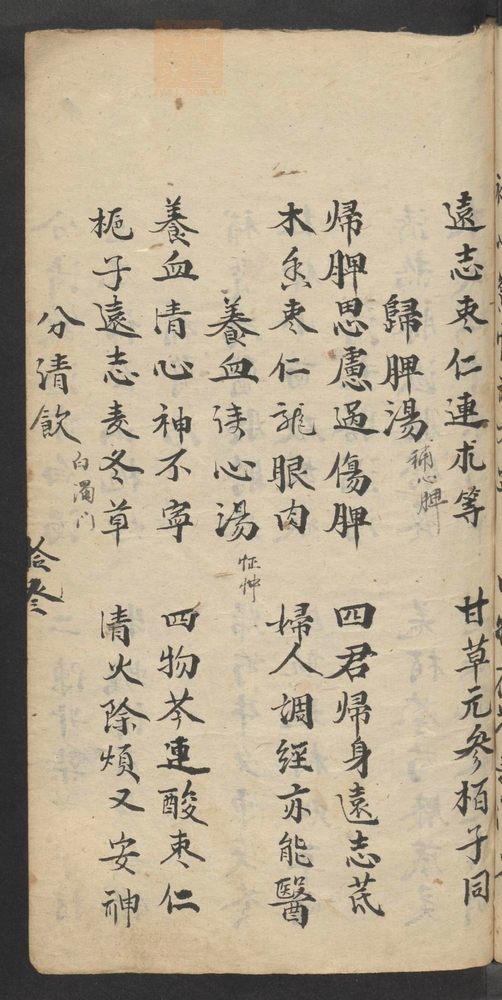 遠志枣仁連朮等　甘草元參栢子同
歸脾湯 補心脾
帰脾思慮過傷脾　四君帰身遠志芪
木香枣仁龍眼肉　婦人調經亦能醫
養血清心湯 怔忡
養血清心神不寧　四物芩連酸枣仁
栀子遠志麦冬草　清火除煩又安神
分清飲 白濁门